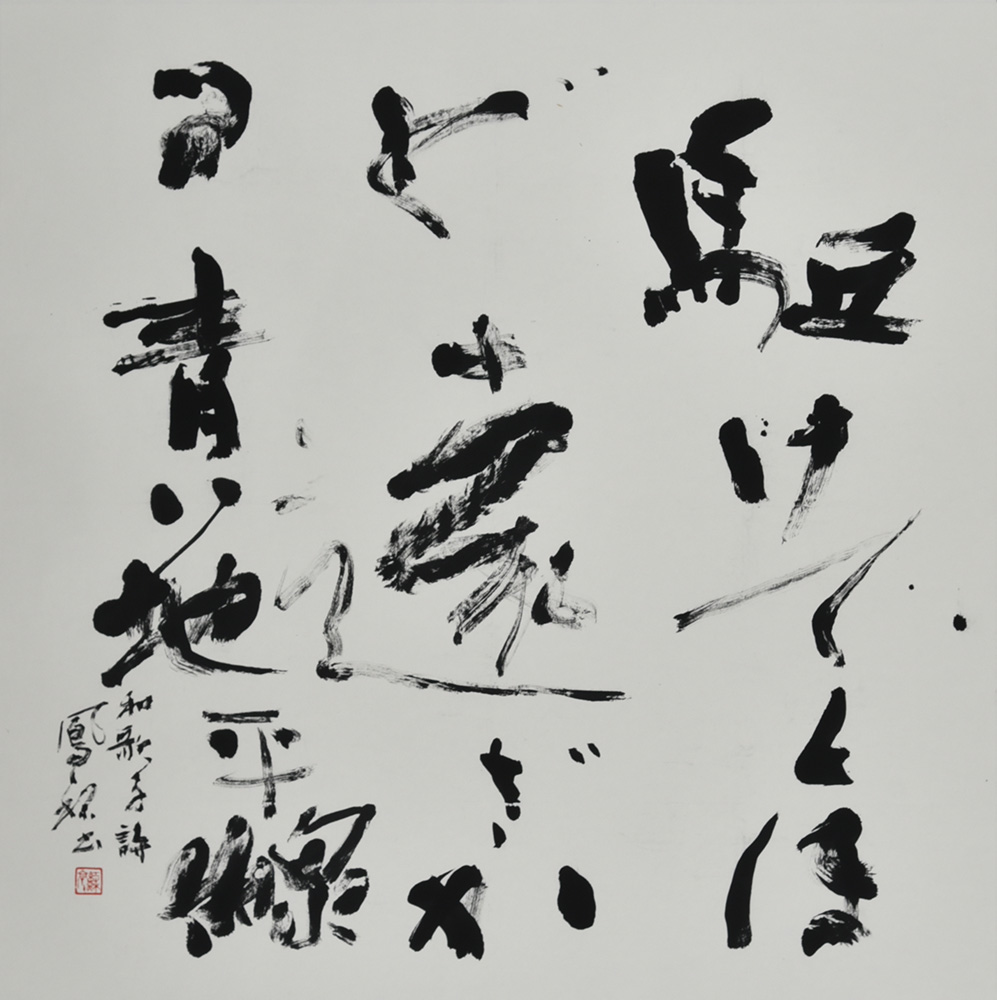 駈けてくほ
ど遠ざか
る青い地平線
和歌子詩
鳳 書